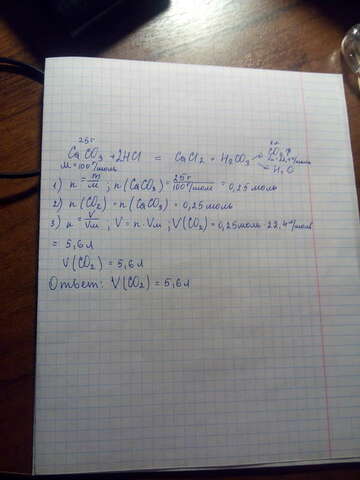 25г
CaCO3 + 2HCl = CaCl2 + H2CO3 CO2↑
H2O
M=100г/моль
1) n = m/M ; n(CaCO3) = 25г/100г/моль = 0,25 моль
2) n(CO2) = n(CaCO3) = 0,25 моль
3) n = V/Vм ; V = n · Vм ; V(CO2) = 0,25моль · 22,4л/моль
= 5,6 л
V(CO2) = 5,6л
Ответ: V(CO2) = 5,6л